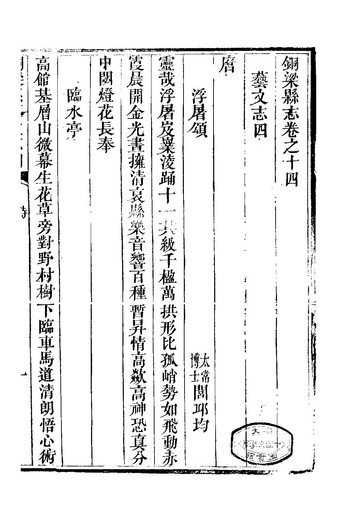 銅梁縣志卷之十四
藝文志四
唐
浮屠頌
太常博士閭邱均
靈哉浮屠岌嶪淩踊十一其級千楹萬拱形比孤峭勢如飛動赤
霞晨開金光晝擁清哀縣樂音響百種暫昇情高歘高神恐真分
中園燈花長奉
臨水亭
高館基層山微幕生花草旁對野村樹下臨車馬道清朗悟心術
詩
一